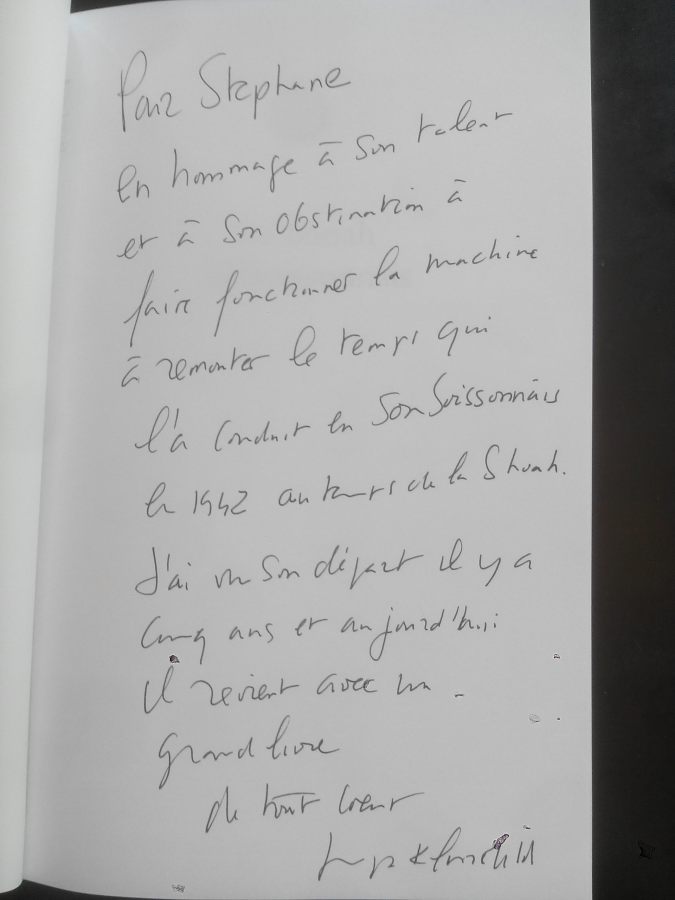 Pour Stéphane
en hommage à son talent
et à son obstination à
faire fonctionner la machine
à remonter le temps qui
l'a conduit en son Soissonnais
en 1942 au temps de la Shoah.
J'ai vu son départ il y a
cinq ans et aujourd'hui
il revient avec un
grand livre
de tout coeur
Klarsfeld